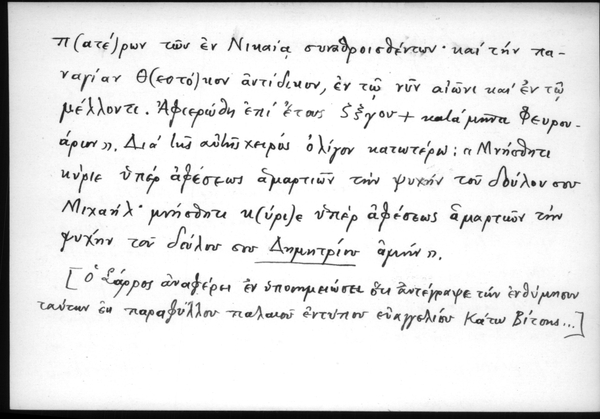 π(ατέ)ρων τῶν ἐν Νικαίᾳ συναθροισθέντων· καί τήν πα-
ναγίαν Θ(εοτό)κον ἀντίδικον, ἐν τῷ νῦν αἰῶνι καί ἐν τῷ
μέλλοντι. Ἀφιερώθη ἐπί ἔτους ζξγου + κατά μῆνα Φευρου-
άριον». Διά τῆς αὐτῆς χειρός ὀλίγον κατωτέρω: «Μνήσθητι
κύριε ὑπέρ ἀφέσεως ἁμαρτιῶν τήν ψυχήν τοῦ δούλου σου
Μιχαήλ· μνήσθητι κ(ύρι)ε ὑπέρ ἀφέσεως ἁμαρτιῶν τήν
ψυχήν τοῦ δούλου σου Δημητρίου ἀμήν».
[Ὁ Σάρρος ἀναφέρει ἐν ὑποσημειώσει ὅτι ἀντέγραψε τήν ἐνθύμησιν
ταύτην ἐκ παραφύλλου παλαιοῦ ἐντύπου εὐαγγελίου Κάτω Βίτσης...]